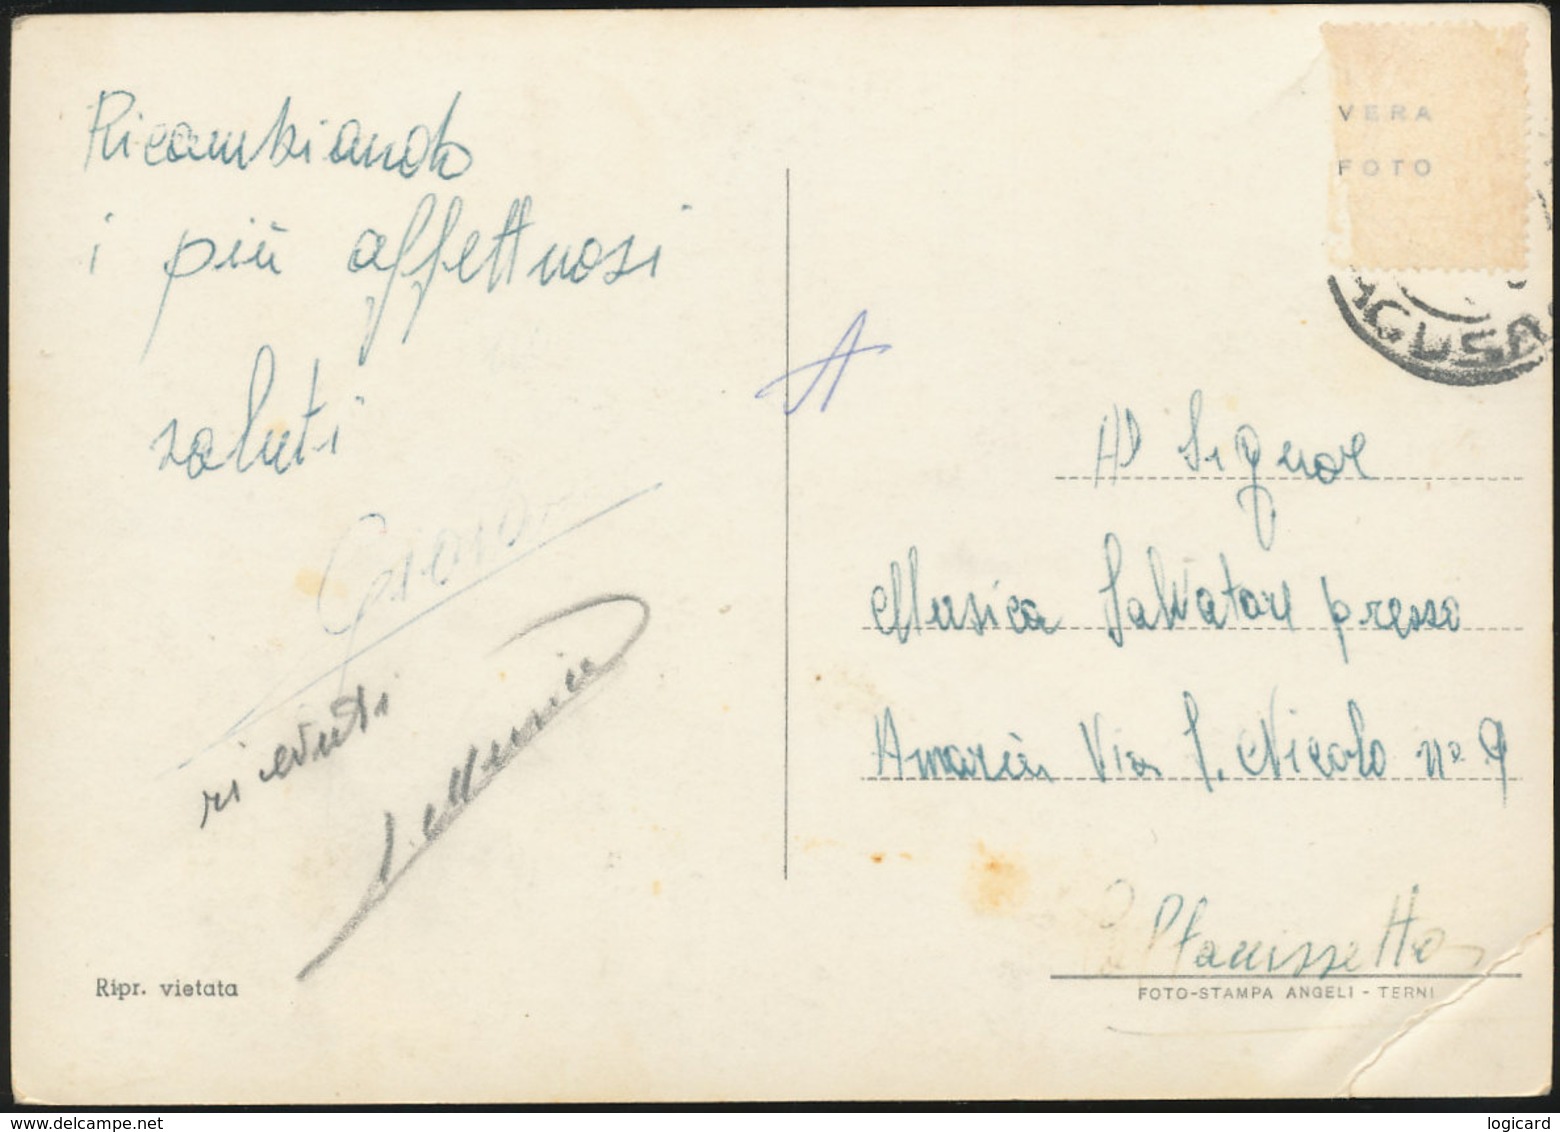 Ricambiando
i più affettuosi
saluti
ricevuti
S. Musica
Ripr. vietata
VERA
FOTO
AGUSA
Al Signor
Musica Salvatore presso
Via S. Nicolo n° 9
Caltanissetta
FOTO-STAMPA ANGELI - TERNI
www.delcampe.net
logicard